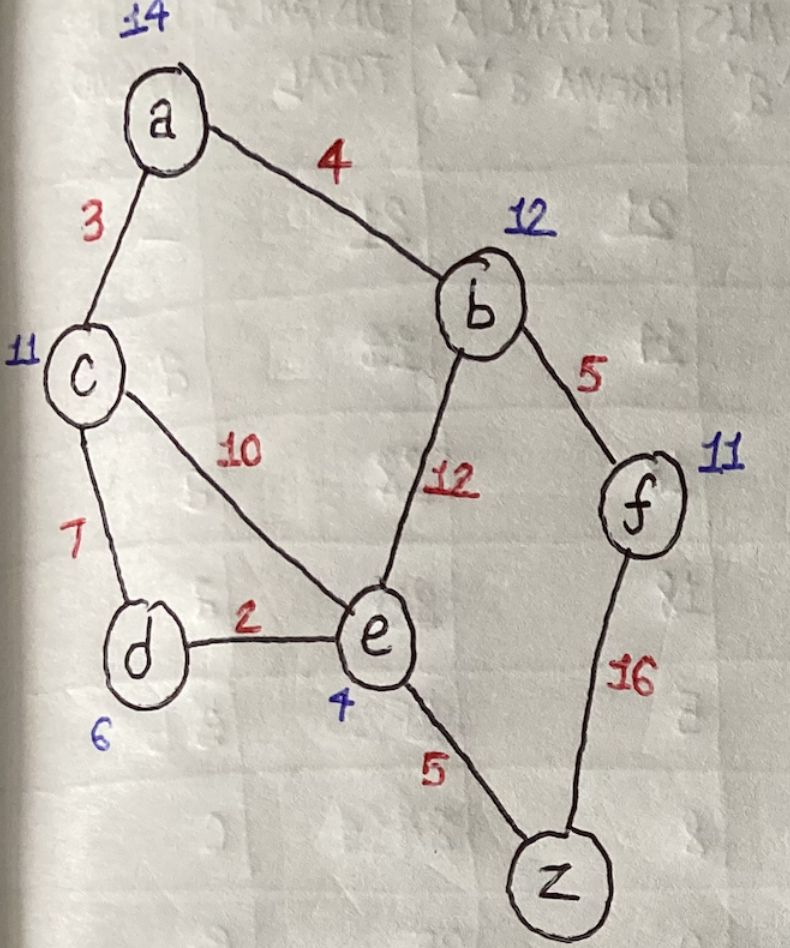 14
a
4
3
12
b
11
c
5
10
11
12
f
7
2
e
d
16
4
6
5
z